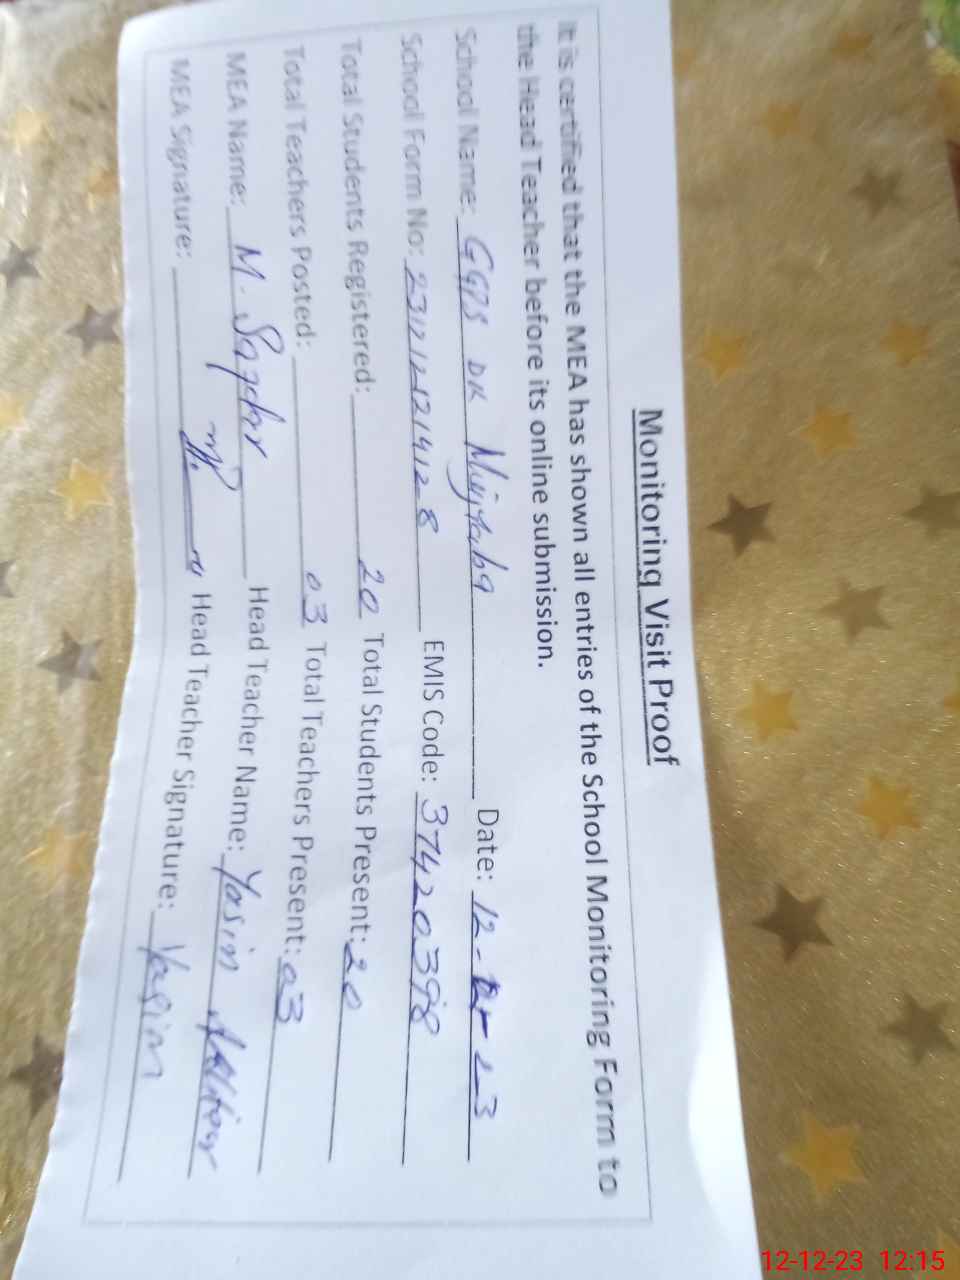 Monitoring Visit Proof
It is certified that the MEA has shown all entries of the School Monitoring Form to
the Head Teacher before its online submission.
School Name: GGPS DK Mujtaba Date: 12-12-23
School Form No: EMIS Code: 37420398
Total Students Registered: 20 Total Students Present: 20
Total Teachers Posted: 03 Total Teachers Present: 03
MEA Name: M. Head Teacher Name: Yasin
MEA Signature: Head Teacher Signature: Yasin
12-12-23 12:15